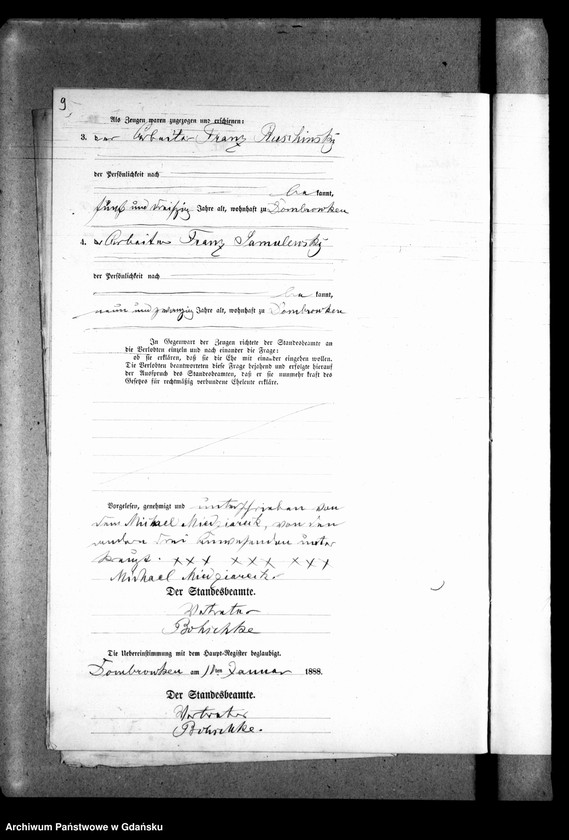 9
Als Zeugen waren zugezogen und erschienen:
3. der Arbeiter Franz Ruschinsky
der Persönlichkeit nach
be kannt,
fünf und dreißig Jahre alt, wohnhaft zu Dombrowken
4. der Arbeiter Franz Jamulewsky
der Persönlichkeit nach
be kannt,
neun und zwanzig Jahre alt, wohnhaft zu Dombrowken
In Gegenwart der Zeugen richtete der Standesbeamte an
die Verlobten einzeln und nach einander die Frage:
ob sie erklären, daß sie die Ehe mit einander eingehen wollen.
Die Verlobten beantworteten diese Frage bejahend und erfolgte hierauf
der Ausspruch des Standesbeamten, daß er sie nunmehr kraft des
Gesetzes für rechtmäßig verbundene Eheleute erkläre.
Vorgelesen, genehmigt und unterschrieben von
dem Michael, von den
andern drei Anwesenden unter
kreuzt. xxx xxx xxx
Michael
Der Standesbeamte.
Vertreter
Bohschke
Die Uebereinstimmung mit dem Haupt-Register beglaubigt.
Dombrowken am ten Januar 1888.
Der Standesbeamte.
Vertreter
Bohschke.
Archiwum Państwowe w Gdańsku